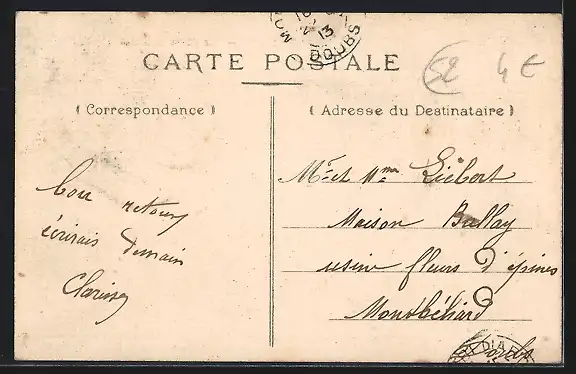 13
DOUBS
CARTE POSTALE
52 4 €
( Correspondance )
( Adresse du Destinataire )
bon retour
écrirais demain
Clarisse
Mr et Mme Liebert
Maison Bullay
usine fleurs d'épines
Montbéliard
Doubs